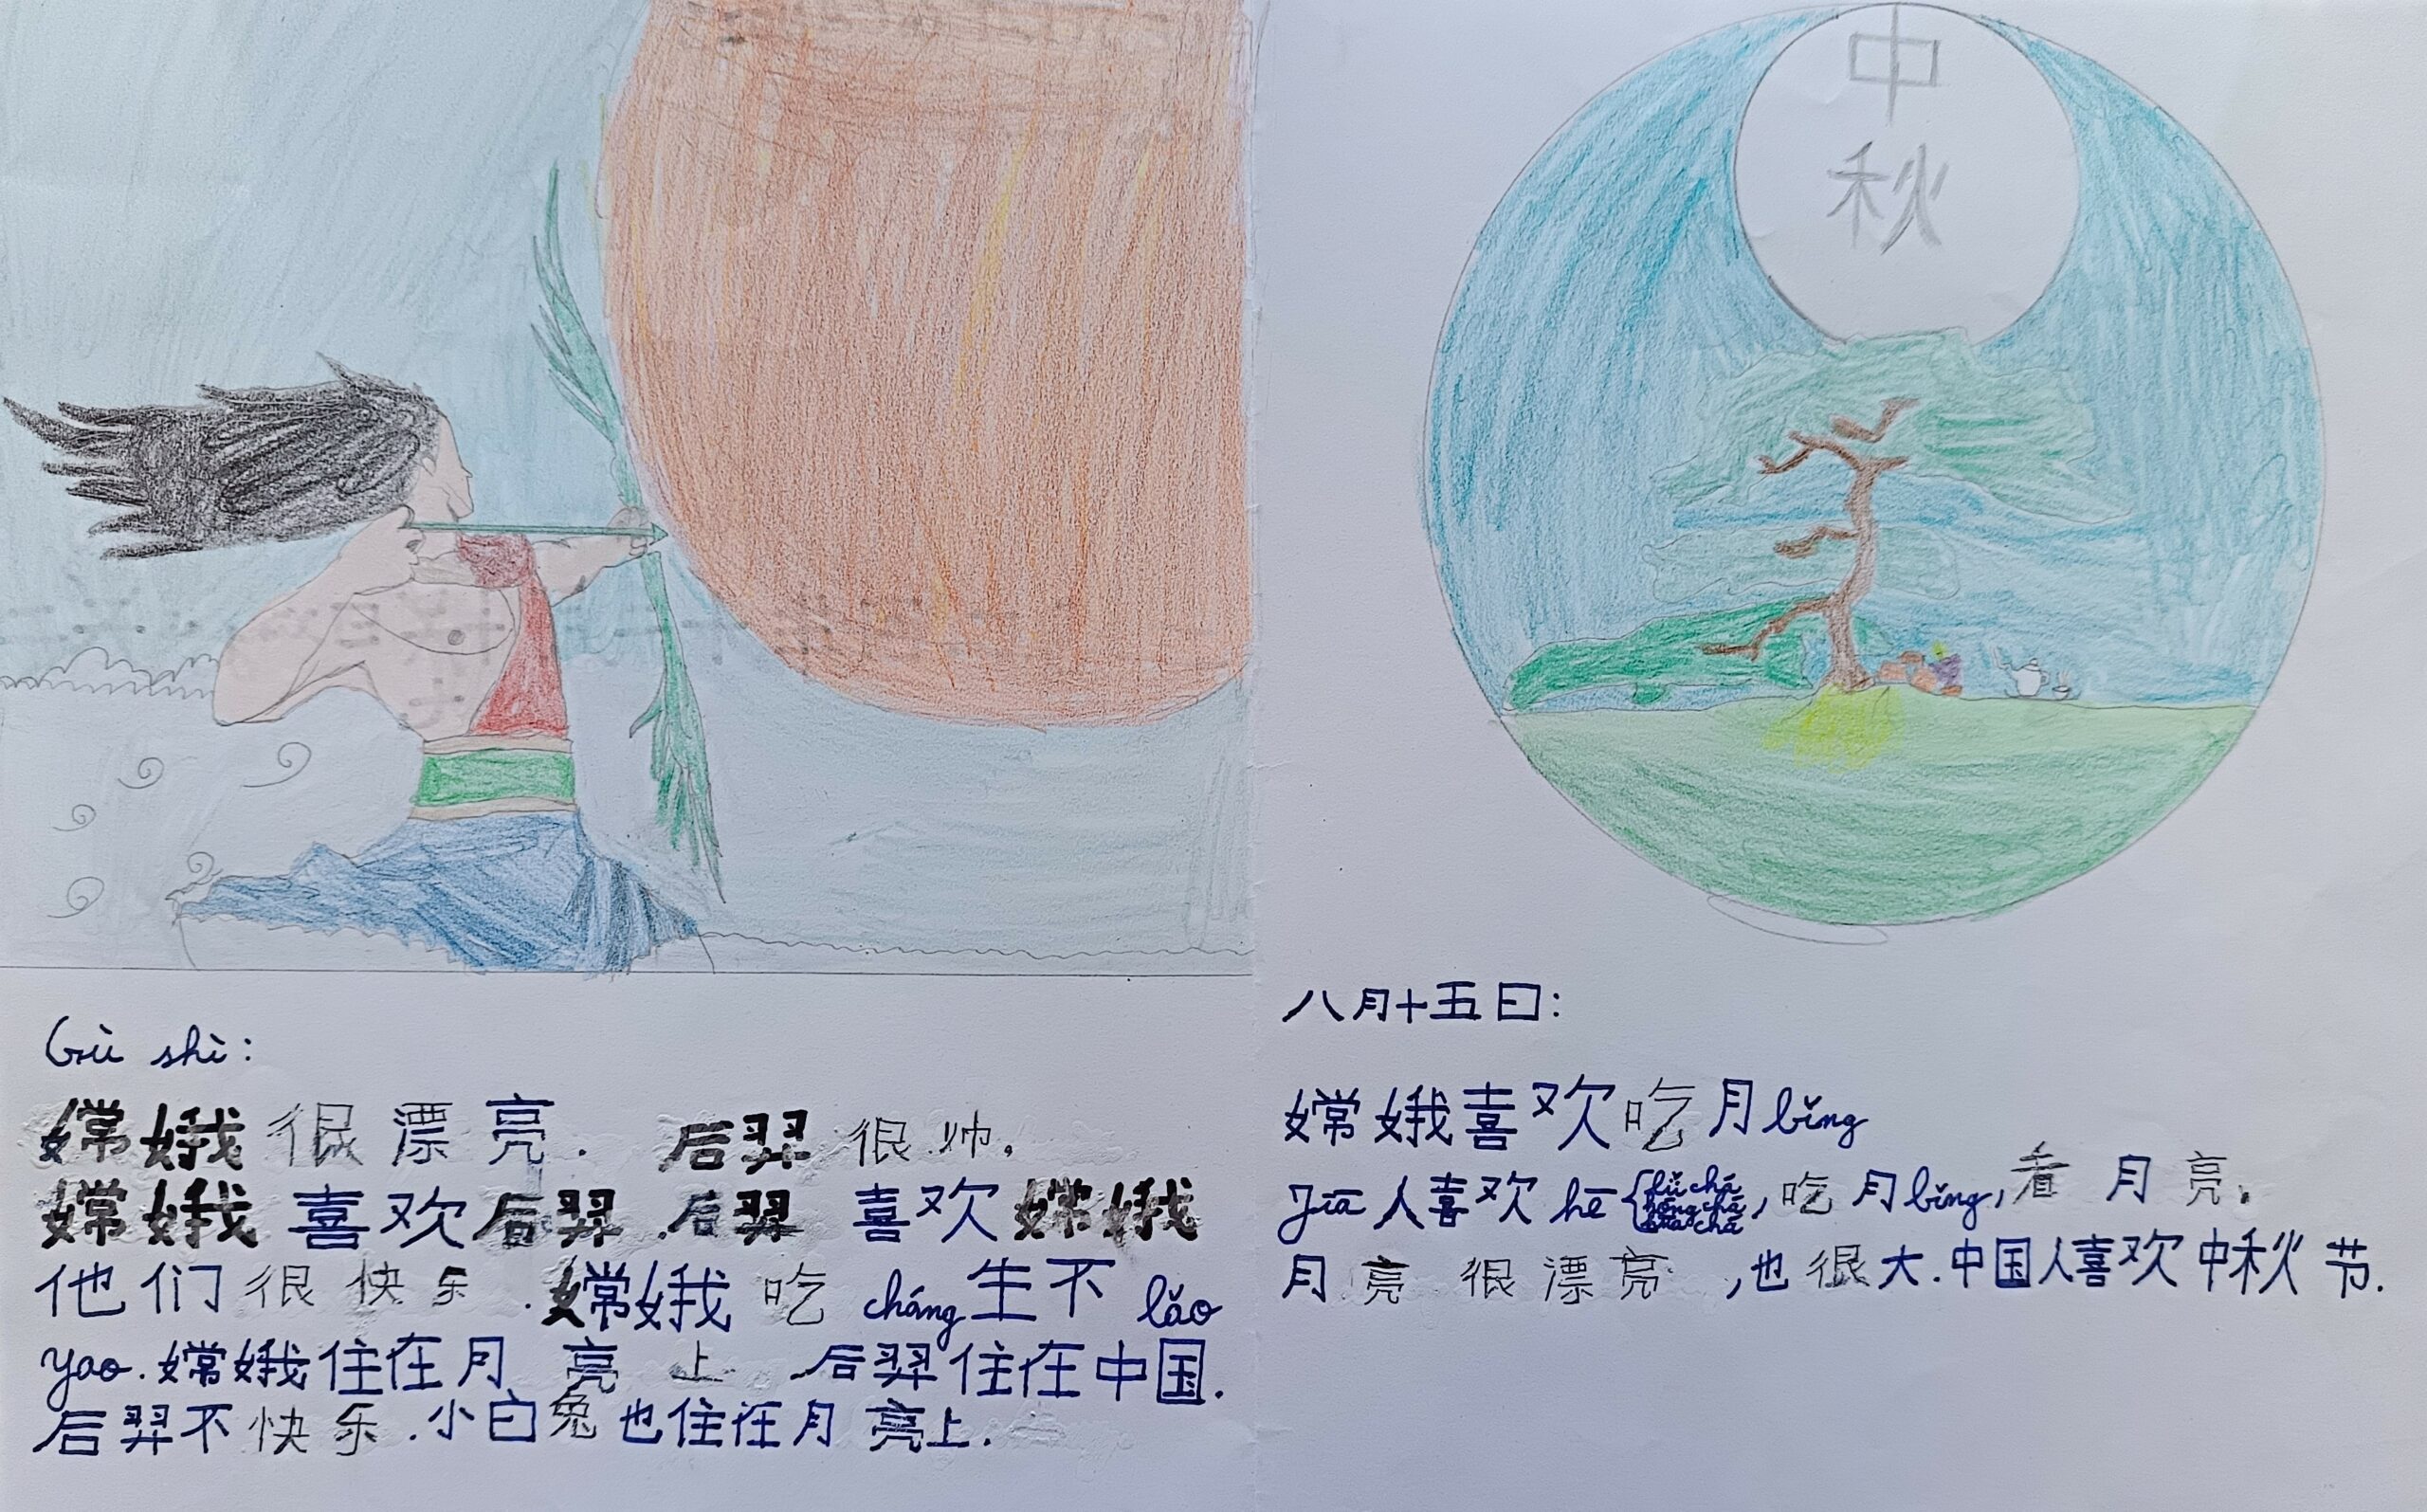 中
秋
Gù shì:
嫦娥很漂亮. 后羿很帅.
嫦娥喜欢后羿.后羿喜欢嫦娥
他们很快乐.嫦娥吃 cháng生不 lǎo
yao.嫦娥住在月亮上. 后羿住在中国.
后羿不快乐.小白兔也住在月亮上.
八月十五日:
嫦娥喜欢吃月bǐng
Jiā人喜欢 hē{lǜ chá
hóng chá
huā chá, 吃月bǐng, 看月亮.
月亮很漂亮,也很大.中国人喜欢中秋节.